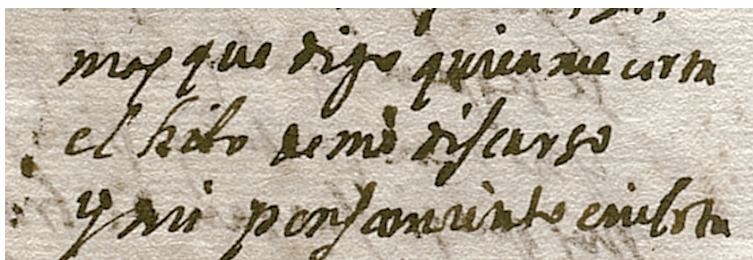 mas que digo quien me corta
el hilo de mi discurso
y mi pensamiento embota